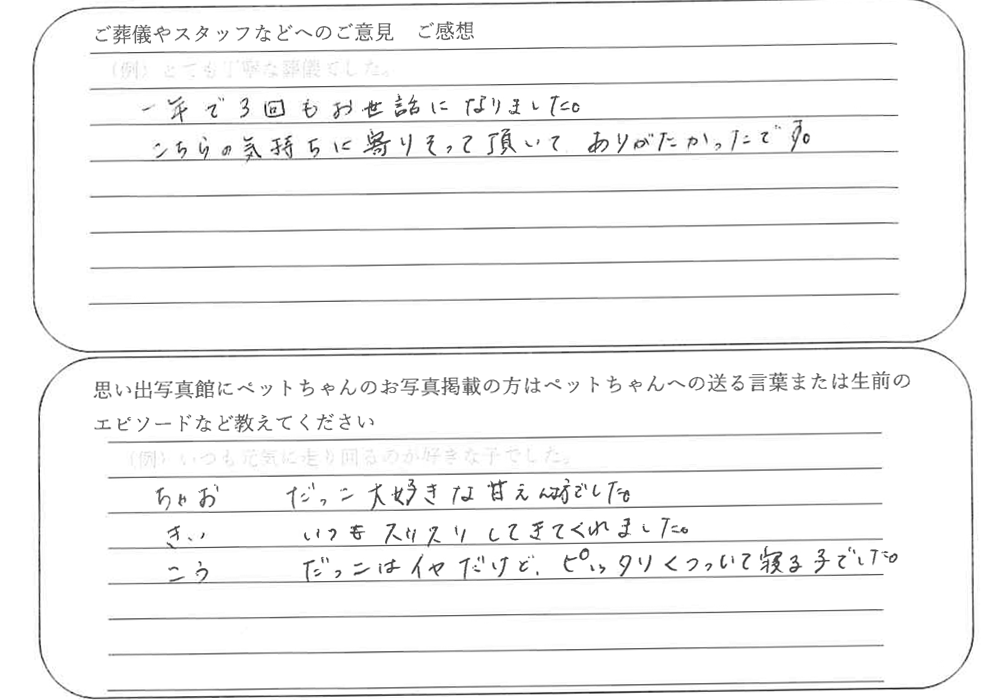 ご葬儀やスタッフなどへのご意見　ご感想
（例）とても丁寧な葬儀でした。
一年で3回もお世話になりました。
こちらの気持ちに寄りそって頂いて ありがたかったです。
思い出写真館にペットちゃんのお写真掲載の方はペットちゃんへの送る言葉または生前の
エピソードなど教えてください
（例）いつも元気に走り回るのが好きな子でした。
ちゃお　だっこ大好きな甘えん坊でした。
きい　いつもスリスリしてきてくれました。
こう　だっこはイヤだけど、ピッタリくっついて寝る子でした。